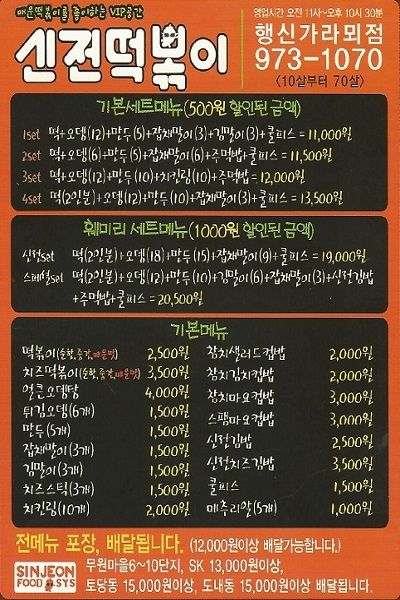 매운떡볶이를 좋아하는 VIP공간
신전떡볶이
영업시간 오전 11시~오후 10시 30분
행신가라뫼점
973-1070
<10살부터 70살>
기본세트메뉴(500원 할인된 금액)
1set 떡+오뎅(12)+만두(5)+잡채말이(3)+김말이(3)+쿨피스=11,000원
2set 떡+오뎅(6)+만두(5)+잡채말이(6)+주먹밥+쿨피스=11,500원
3set 떡+오뎅(12)+만두(10)+치킨링(10)+주먹밥=12,000원
4set 떡(2인분)+오뎅(12)+만두(10)+잡채말이(3)+쿨피스=13,500원
훼미리 세트메뉴(1000원 할인된 금액)
신전set 떡(2인분)+오뎅(18)+만두(15)+잡채말이(9)+쿨피스=19,000원
스페셜set 떡(2인분)+오뎅(12)+만두(10)+김말이(6)+잡채말이(3)+신전김밥
+주먹밥+쿨피스=20,500원
기본메뉴
떡볶이(순한,중간,매운맛) 2,500원
치즈떡볶이(순한,중간,매운맛) 3,500원
얼큰오뎅탕 4,000원
튀김오뎅(6개) 1,500원
만두(5개) 1,500원
잡채말이(3개) 1,500원
김말이(3개) 1,500원
치즈스틱(3개) 1,500원
치킨링(10개) 2,000원
참치샐러드컵밥 2,000원
참치김치컵밥 2,000원
참치마요컵밥 3,000원
스팸마요컵밥 3,000원
신전김밥 2,500원
신전치즈김밥 3,500원
쿨피스 1,500원
메추리알(5개) 1,000원
전메뉴 포장, 배달됩니다. (12,000원이상 배달가능합니다.)
무원마을6~10단지, SK 13,000원이상,
토당동 15,000원이상, 도내동 15,000원이상 배달됩니다.
SINJEON
FOOD SYS